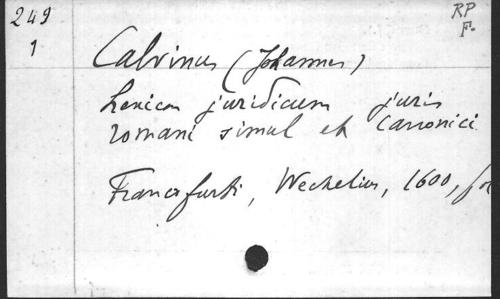 249
1
RP
F.
Calvinus (Johannes)
Lexicon juridicum juris
romani simul et canonici
Francofurti, Wechelius, 1600, fo